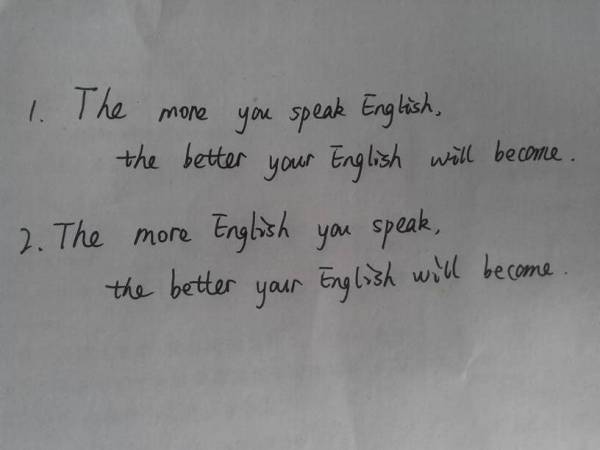 1. The more you speak English,
the better your English will become.
2. The more English you speak,
the better your English will become.